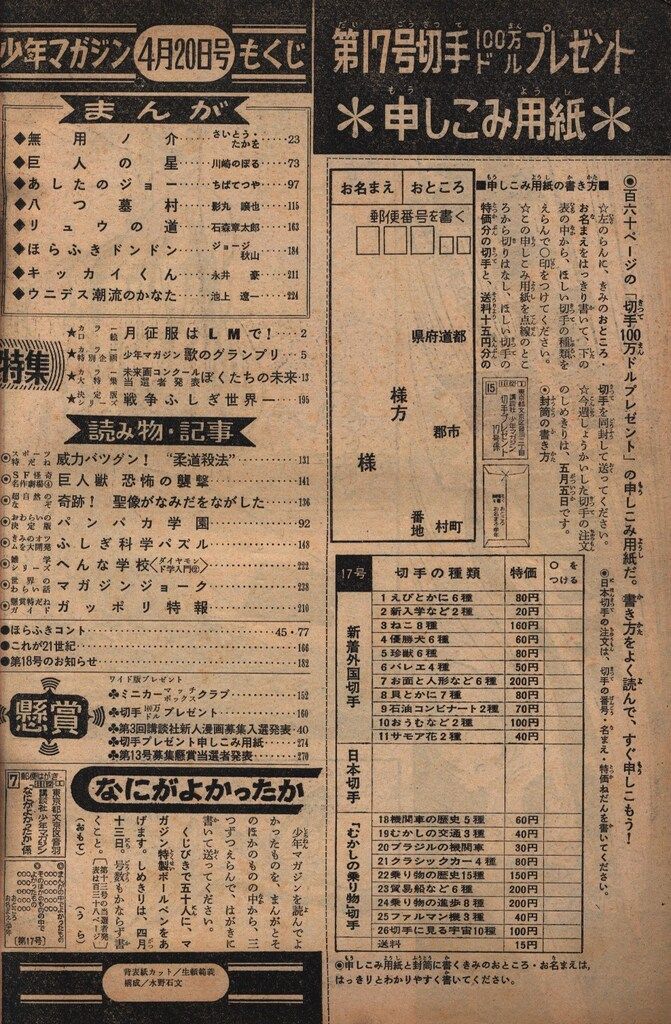 少年マガジン 4月20日号 もくじ
まんが
◆無用ノ介……さいとう・たかを……23
◆巨人の星……川崎のぼる……73
◆あしたのジョー……ちばてつや……97
◆八つ墓村……影丸譲也……115
◆リュウの道……石森章太郎……163
◆ほらふきドンドン……ジョージ秋山……184
◆キッカイくん……永井豪……211
◆ウニデス潮流のかなた……池上遼一……224
特集
月征服はLMで!……2
少年マガジン歌のグランプリ……5
未来画コンクール当選者発表 ぼくたちの未来……13
戦争ふしぎ世界一……195
読み物・記事
威力バツグン! “柔道殺法”……131
巨人獣 恐怖の襲撃……141
奇跡! 聖像がなみだをながした……136
パンパカ学園……92
ふしぎ科学パズル……148
へんな学校……222
マガジンジョーク……238
ガッポリ特報……210
●ほらふきコント……45・77
●これが21世紀……166
●第18号のお知らせ……182
懸賞
ワイド版プレゼント
♣ミニカーマッチボックスクラブ……152
♣切手100万ドルプレゼント……160
♣第3回講談社新人漫画募集入選発表・40
♣切手プレゼント申しこみ用紙……274
♣第13号募集懸賞当選者発表……270
なにがよかったか
少年マガジンを読んでよ
かったものを、まんがとそ
のほかのものの中から、三
つずつえらんで、はがきに
書いて送ってください。
くじびきで五十人に、マ
ガジン特製ボールペンをあ
げます。しめきりは、四月
十三日。号数もかならず書
くこと。
(おもて)
(うら)
東京都文京区音羽
講談社 少年マガジン
「なにがよかったか」係
〔第17号〕
背表紙カット/生頼範義
構成/水野石文
第17号切手100万ドルプレゼント
*申しこみ用紙*
◉百六十ページの「切手100万ドルプレゼント」の申しこみ用紙だ。書き方をよく読んで、すぐ申しこもう!
■申しこみ用紙の書き方■
☆左のらんに、きみのおところ・
お名まえをはっきり書いて、下の
表の中から、ほしい切手の種類を
えらんで〇印をつけてください。
☆この申しこみ用紙を点線のとこ
ろから切りはなし、ほしい切手の
特価分の切手と、送料十五円分の
切手を同封して送ってください。
☆今週しょうかいした切手の注文
のしめきりは、五月五日です。
☆封筒の書き方
◉日本切手の注文は、切手の番号・名まえ・特価ねだんを書いてください。
お名まえ
おところ
郵便番号を書く
県府道都
郡市
村町
番地
様方
様
17号 切手の種類 特価 〇をつける
新着外国切手
1 えびとかに6種 80円
2 新入学など2種 20円
3 ねこ8種 160円
4 優勝犬6種 60円
5 珍獣6種 80円
6 バレエ4種 50円
7 お面と人形など6種 200円
8 貝とかに7種 80円
9 石油コンビナート2種 70円
10 おうむなど2種 100円
11 サモア花2種 40円
日本切手
「むかしの乗り物」切手
18 機関車の歴史5種 60円
19 むかしの交通3種 40円
20 ブラジルの機関車 30円
21 クラシックカー4種 80円
22 乗り物の歴史15種 150円
23 貿易船など6種 200円
24 乗り物の進歩8種 200円
25 ファルマン機3種 40円
26 切手に見る宇宙10種 100円
送料 15円
◉申しこみ用紙と封筒に書くきみのおところ・お名まえは、
はっきりとわかりやすく書いてください。